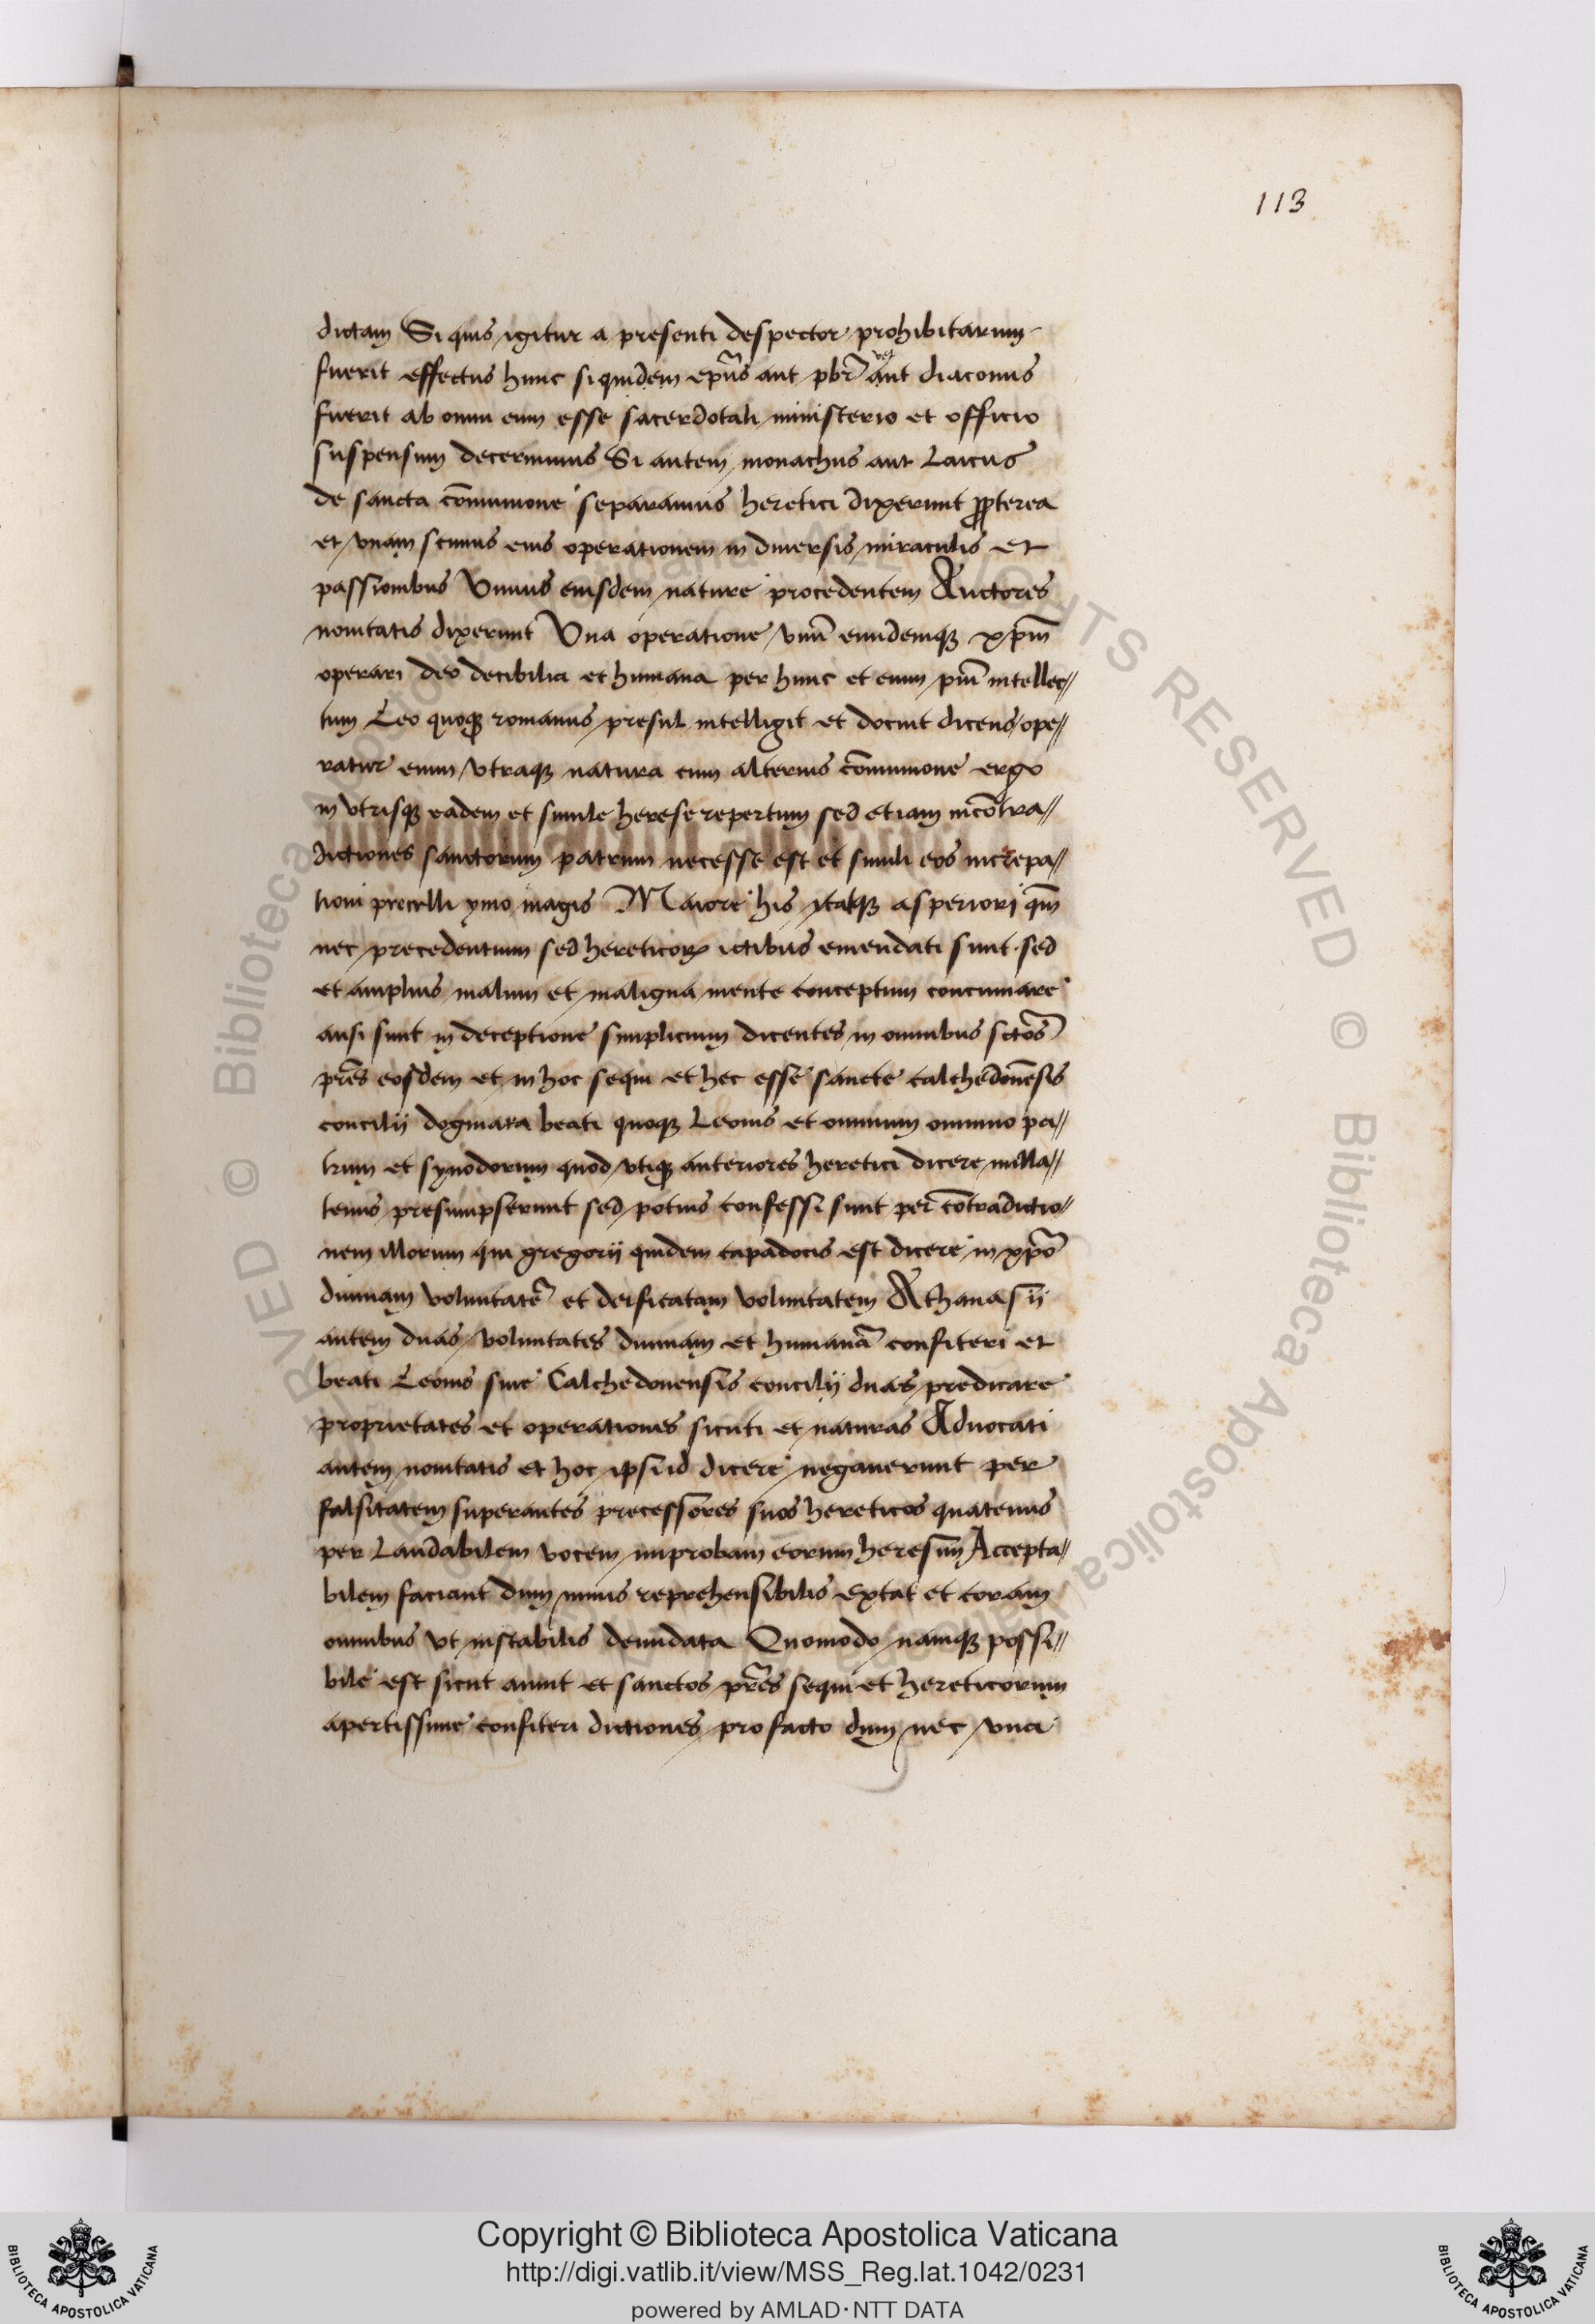 113
dictam Si quis igitur a presenti despector prohibitarum
fuerit effectus hunc siquidem ep̄us aut pbr̄ vel aut diaconus
fuerit ab omni eum esse sacerdotali ministerio et officio
suspensum decernimus Si autem monachus aut Laicus
de sancta cōmunione separamus heretici dixerunt ꝓpterea
et vnam scimus eius operationem in diuersis miraculis et
passionibus Vnius eiusdem nature procedentem Auctores
nouitatis dixerunt Vna operatione vnū eundemqꝫ xp̄m
operari deo decibilia et humana per hunc et enim pm̄ intellec//
tum Leo quoqꝫ romanus presul intelligit et docuit dicens ope//
ratur enim vtraqꝫ natura cum alterius cōmunione ergo
in vtrisqꝫ eadem et simile herese repertum sed etiam in cōtra//
dictiones sanctorum patrum necesse est et simili eos increpa//
tioni precelli ymo magis Maiore his itaqꝫ asperiori qm̄
nec precedentium sed hereticoꝝ ictibus emendati sunt sed
et amplius malum et maligna mente conceptum concinnare
ausi sunt in deceptione simplicium dicentes in omnibus sctōs
pr̄es eosdem et in hoc sequi et hec esse sancte calchedonēsis
concilij dogmata beati quoqꝫ Leonis et omnium omnino pa//
trum et synodorum quod vtiqꝫ anteriores heretici dicere nulla//
tenus presumpserunt sed potius confessi sunt per cōtradictio//
nem illorum qui gregorij quidem capadocis est dicere in xp̄o
diuinam voluntatē et deificatam voluntatem Athanasij
autem duas voluntates diuinam et humanā confiteri et
beati Leonis siue Calchedonensis concilij duas predicare
proprietates et operationes sicuti et naturas Aduocati
autem nouitatis et hoc ipsud dicere negauerunt per
falsitatem superantes precessores suos hereticos quatenus
per Laudabilem vocem improbam eorum heresim̄ Accepta//
bilem faciant dum nimis reprehensibilis extat et coram
omnibus vt instabilis denudata Quomodo namqꝫ possi//
bile est sicut aiunt et sanctos pr̄es sequi et hereticorum
apertissime confiteri dictiones pro facto dum nec vna
Copyright © Biblioteca Apostolica Vaticana
http://digi.vatlib.it/view/MSS_Reg.lat.1042/0231
powered by AMLAD·NTT DATA
BIBLIOTECA APOSTOLICA VATICANA
BIBLIOTECA APOSTOLICA VATICANA